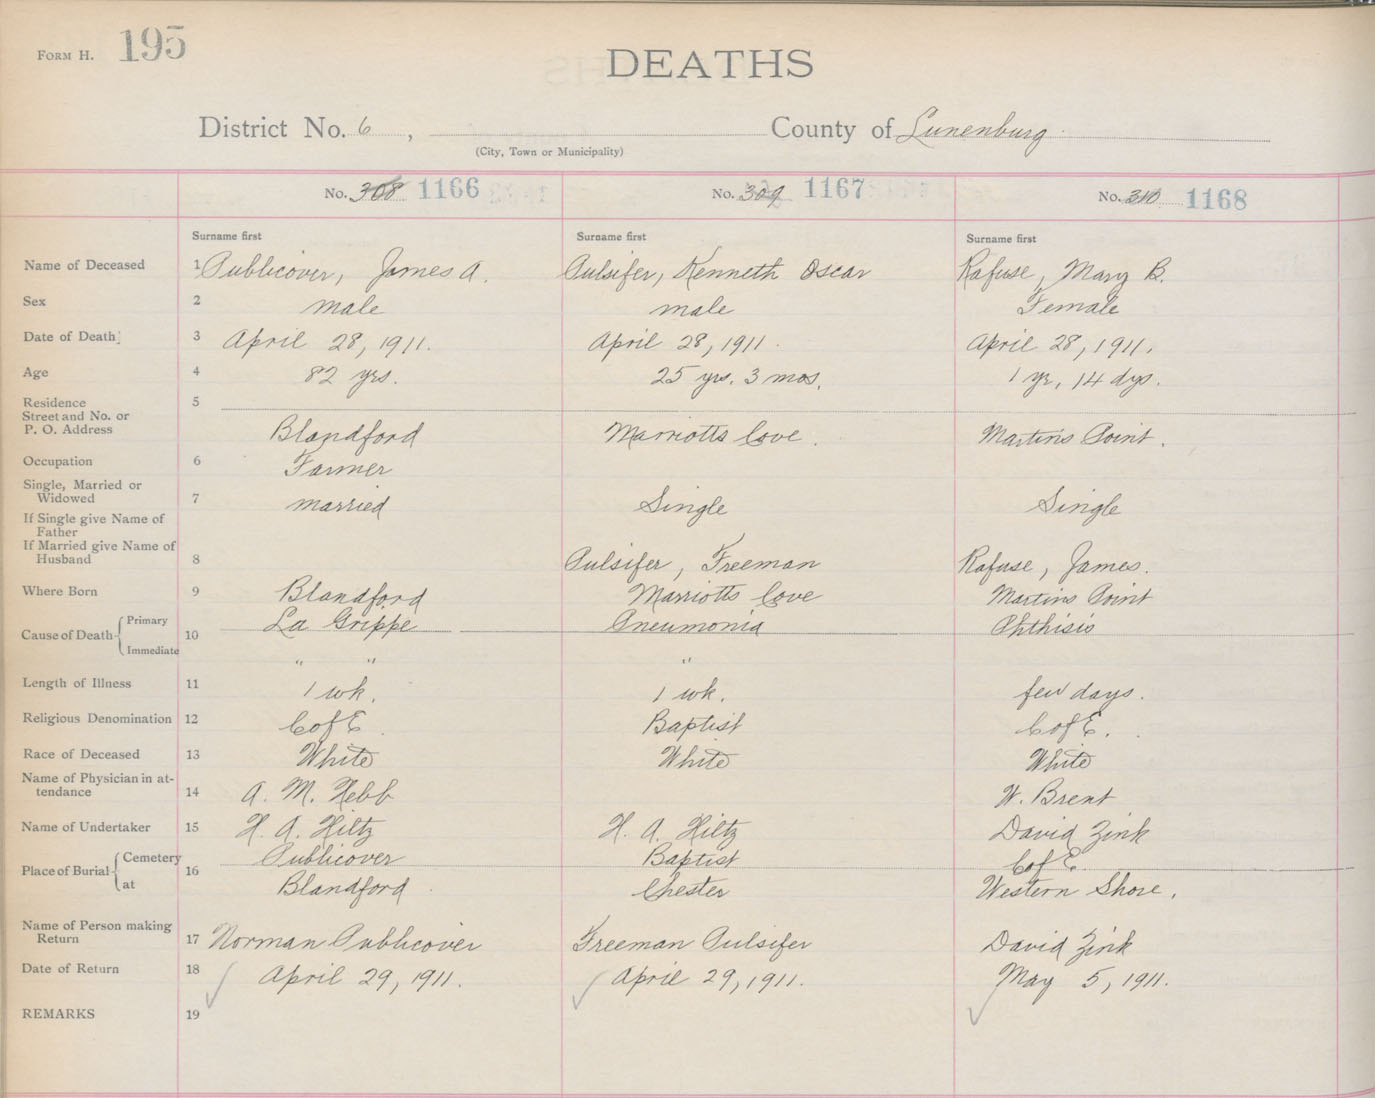 FORM H. 195
DEATHS
District No. 6, County of Lunenburg
(City, Town or Municipality)
No. 308 1166 No. 309 1167 No. 310 1168
Surname first Surname first Surname first
Name of Deceased 1 Publicover, James A. Pulsifer, Kenneth Oscar Rafuse, Mary B.
Sex 2 male male Female
Date of Death 3 April 28, 1911. April 28, 1911. April 28, 1911.
Age 4 82 yrs. 25 yrs. 3 mos. 1 yr, 14 dys.
Residence 5
Street and No. or
P. O. Address Blandford Marriotts Cove. Martins Point.
Occupation 6 Farmer
Single, Married or
Widowed 7 married Single Single
If Single give Name of
Father
If Married give Name of
Husband 8 Pulsifer, Freeman Rafuse, James.
Where Born 9 Blandford Marriotts Cove Martins Point
Cause of Death 10 Primary La Grippe Pneumonia Phthisis
Immediate " " "
Length of Illness 11 1 wk. 1 wk. few days.
Religious Denomination 12 C of E. Baptist C of E.
Race of Deceased 13 White White White
Name of Physician in at-
tendance 14 A. M. Hebb W. Brent
Name of Undertaker 15 H. A. Hiltz H. A. Hiltz David Zink
Place of Burial 16 Cemetery Publicover Baptist C of E.
at Blandford Chester Western Shore.
Name of Person making
Return 17 Norman Publicover Freeman Pulsifer David Zink
Date of Return 18 April 29, 1911. April 29, 1911. May 5, 1911.
REMARKS 19